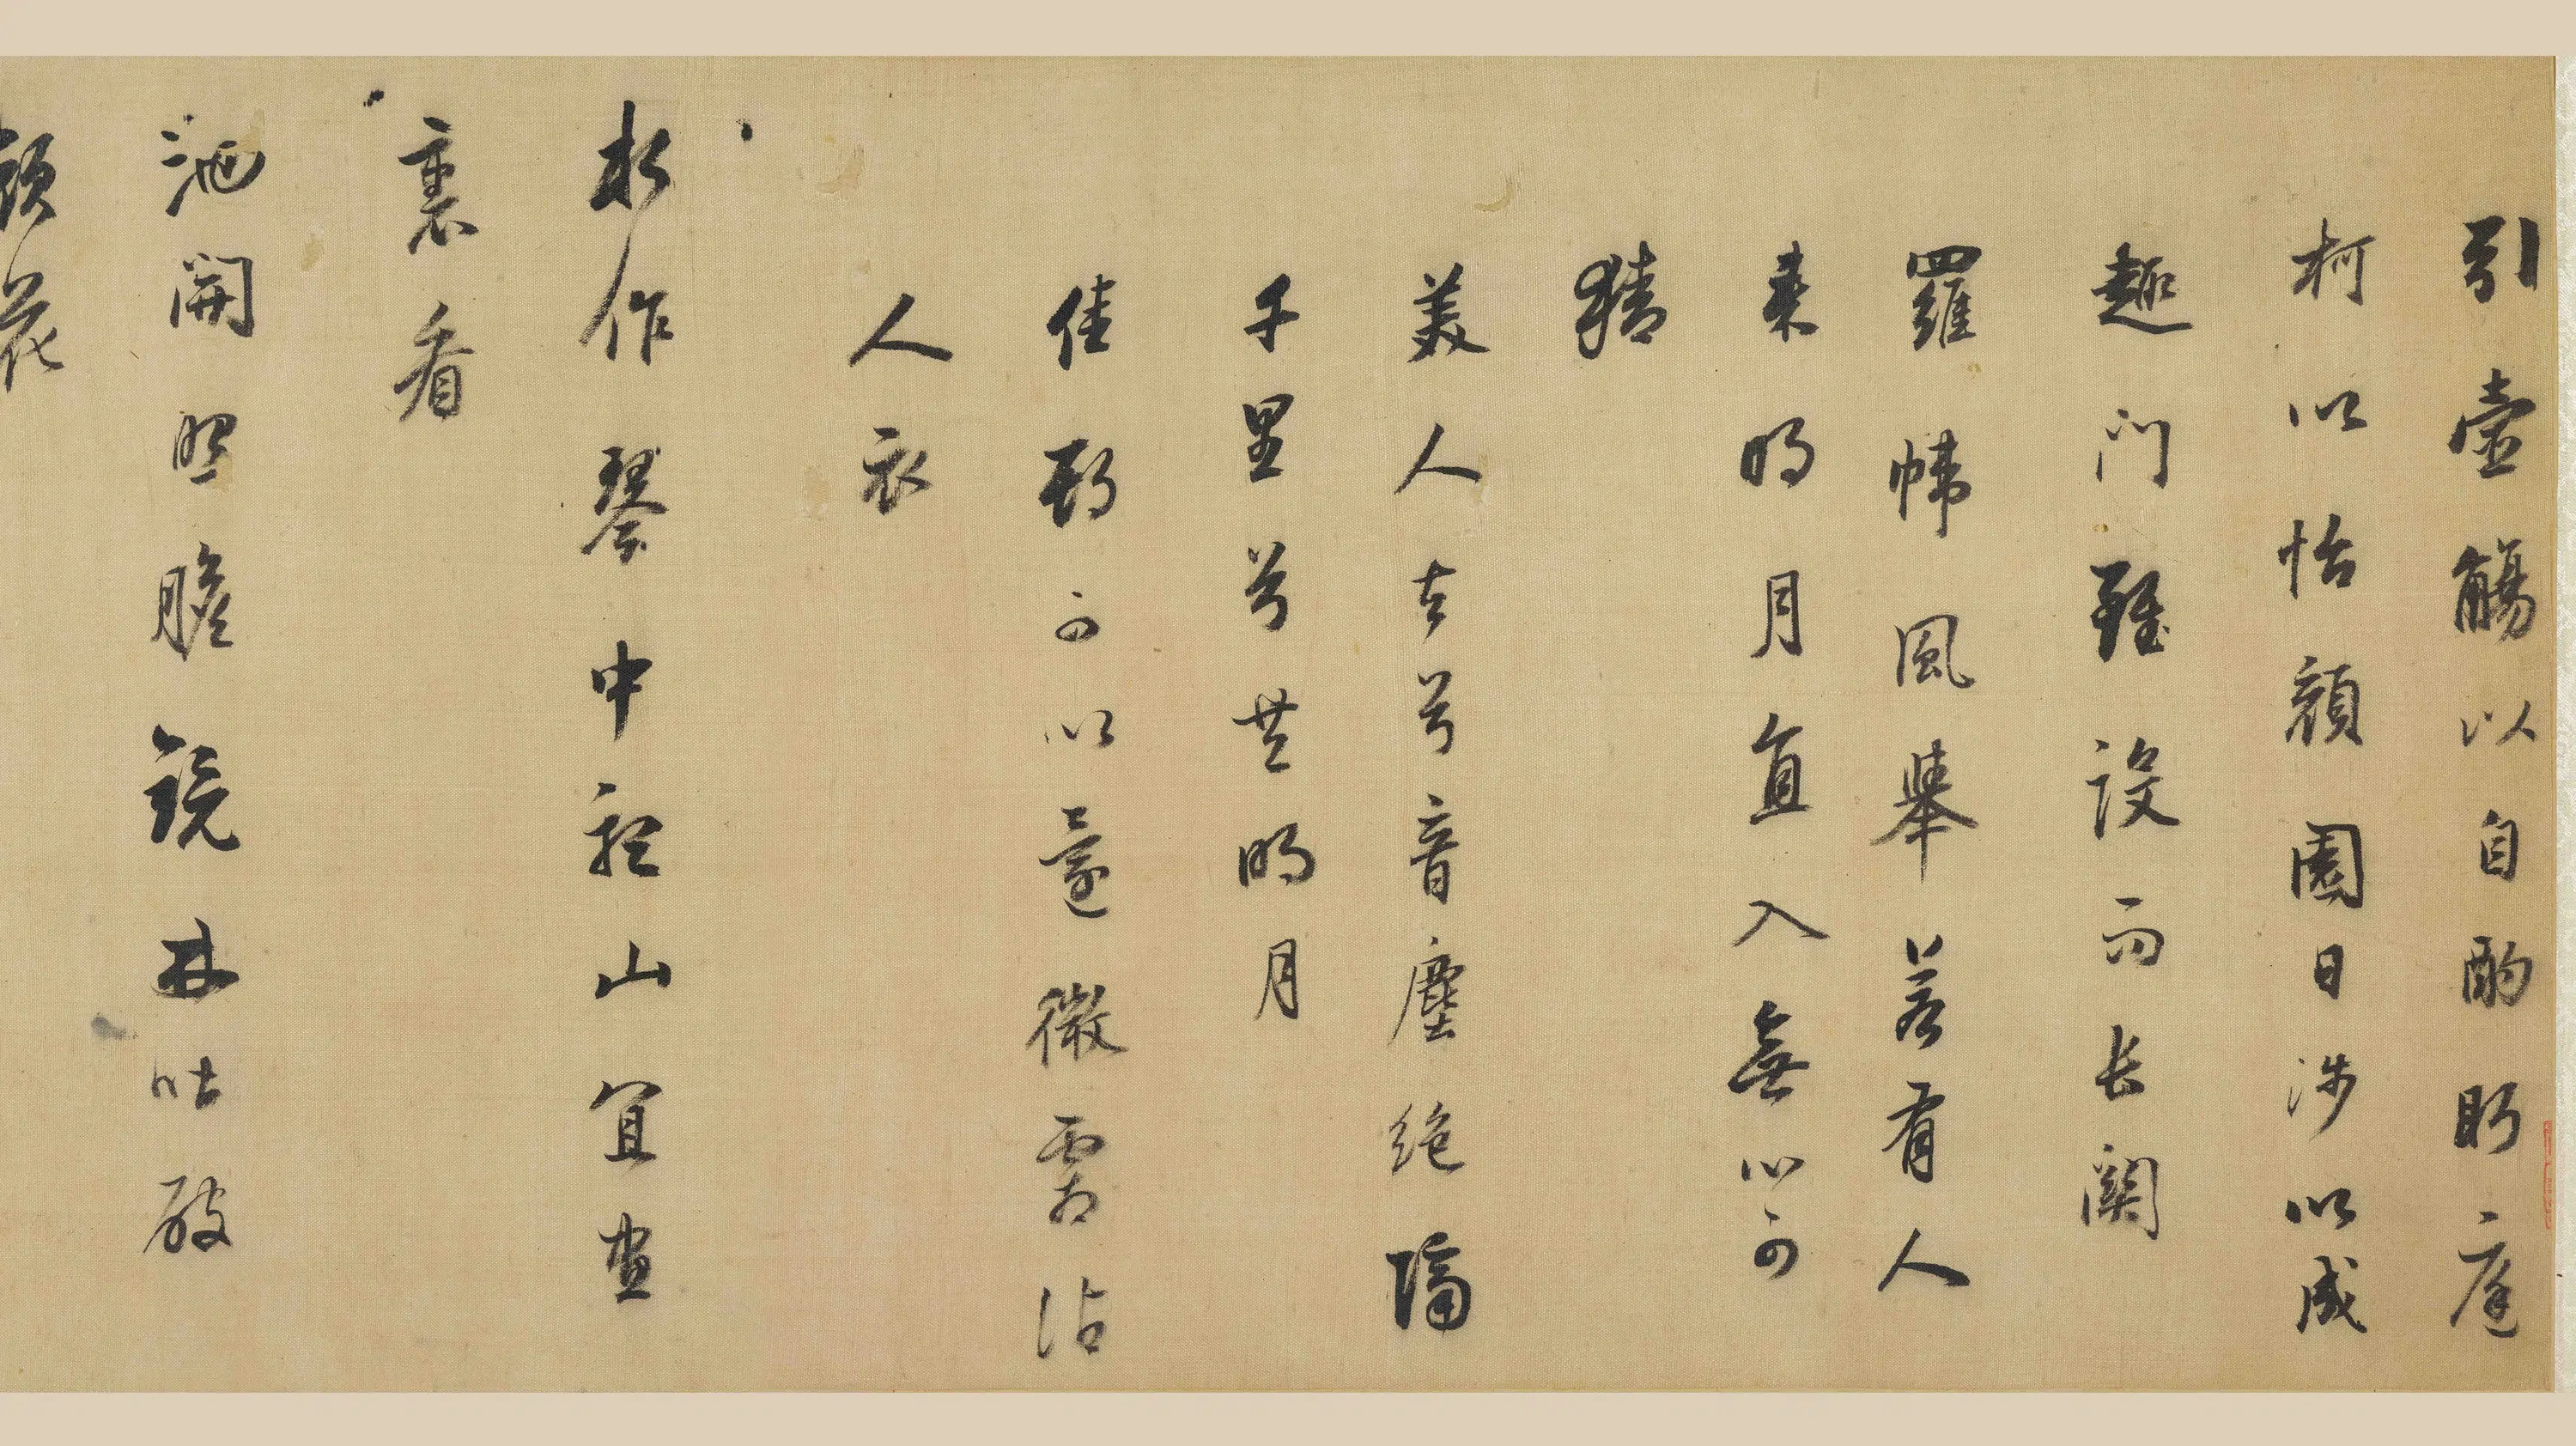 引壺觴以自酌眄庭
柯以怡顏園日涉以成
趣門雖設而長關
羅幃風舉若有人
來明月直入無心可
猜
美人去兮音塵絕隔
千里兮共明月
佳期可以還微霜沾
人衣
水作琴中聽山宜畫
裏看
池開照膽鏡林吐破
顏花